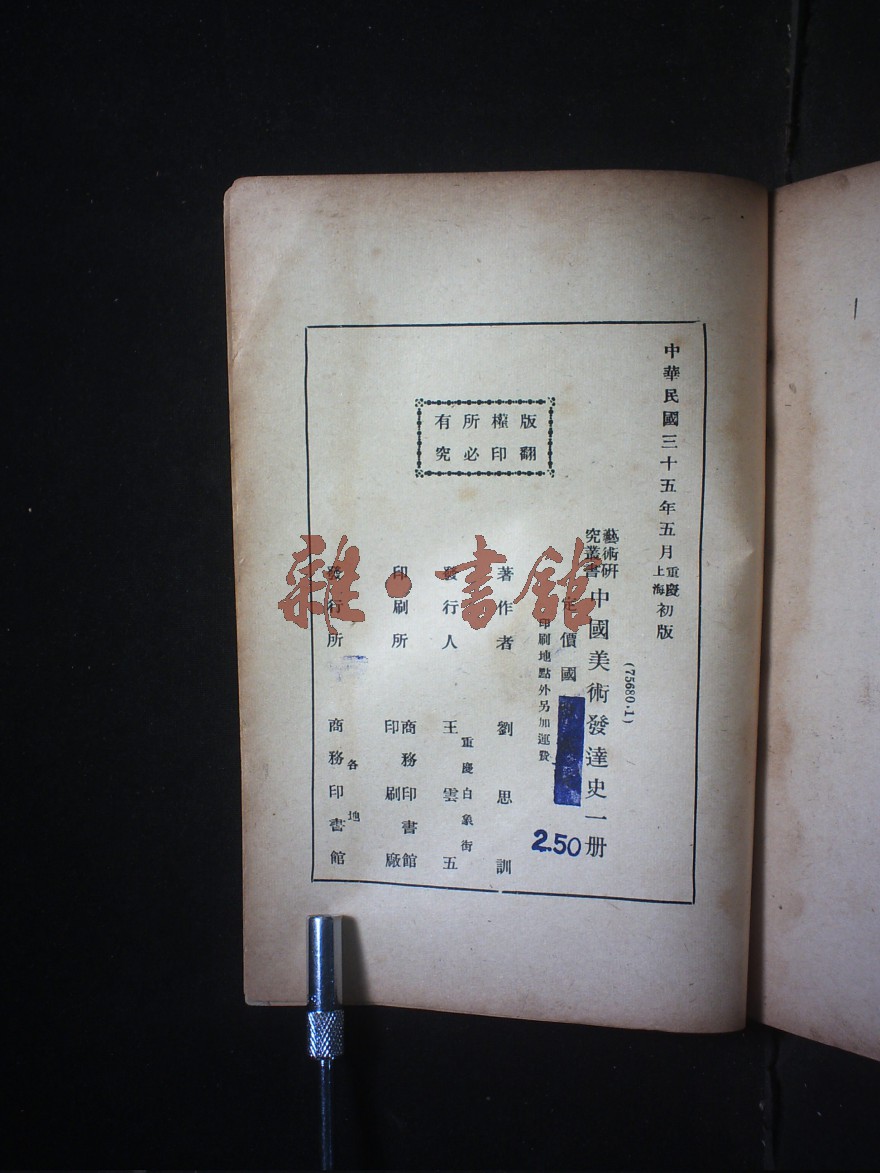 中華民國三十五年五月重慶上海初版
(75680·1)
藝術研究叢書 中國美術發達史一册
定價國
2.50
印刷地點外另加運費
著作者 劉思訓
發行人 王雲五
重慶白象街
印刷所 商務印書館印刷廠
發行所 各地商務印書館
版權所有
翻印必究
雜·書館